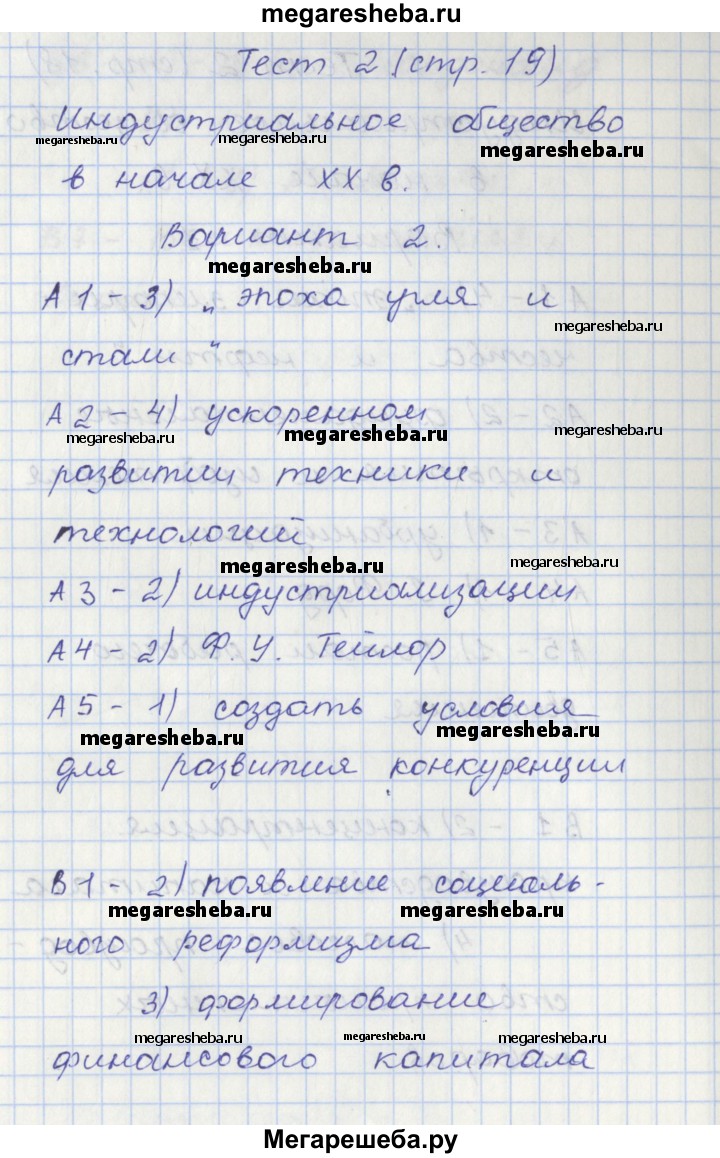 megaresheba.ru
Тест 2 (стр. 19)
Индустриальное общество
megaresheba.ru megaresheba.ru megaresheba.ru
в начале XX в.
Вариант 2.
megaresheba.ru
А 1 - 3) „ эпоха угля и
megaresheba.ru
стали "
А 2 - 4) ускоренном
megaresheba.ru megaresheba.ru megaresheba.ru
развитии техники и
технологий
megaresheba.ru megaresheba.ru
А 3 - 2) индустриализации
А 4 - 2) Ф. У. Тейлор
А 5 - 1) создать условия
megaresheba.ru megaresheba.ru
для развития конкуренции
В 1 - 2) появление социаль -
megaresheba.ru megaresheba.ru
ного реформизма
3) формирование
megaresheba.ru megaresheba.ru megaresheba.ru
финансового капитала
Мегарешеба.ру